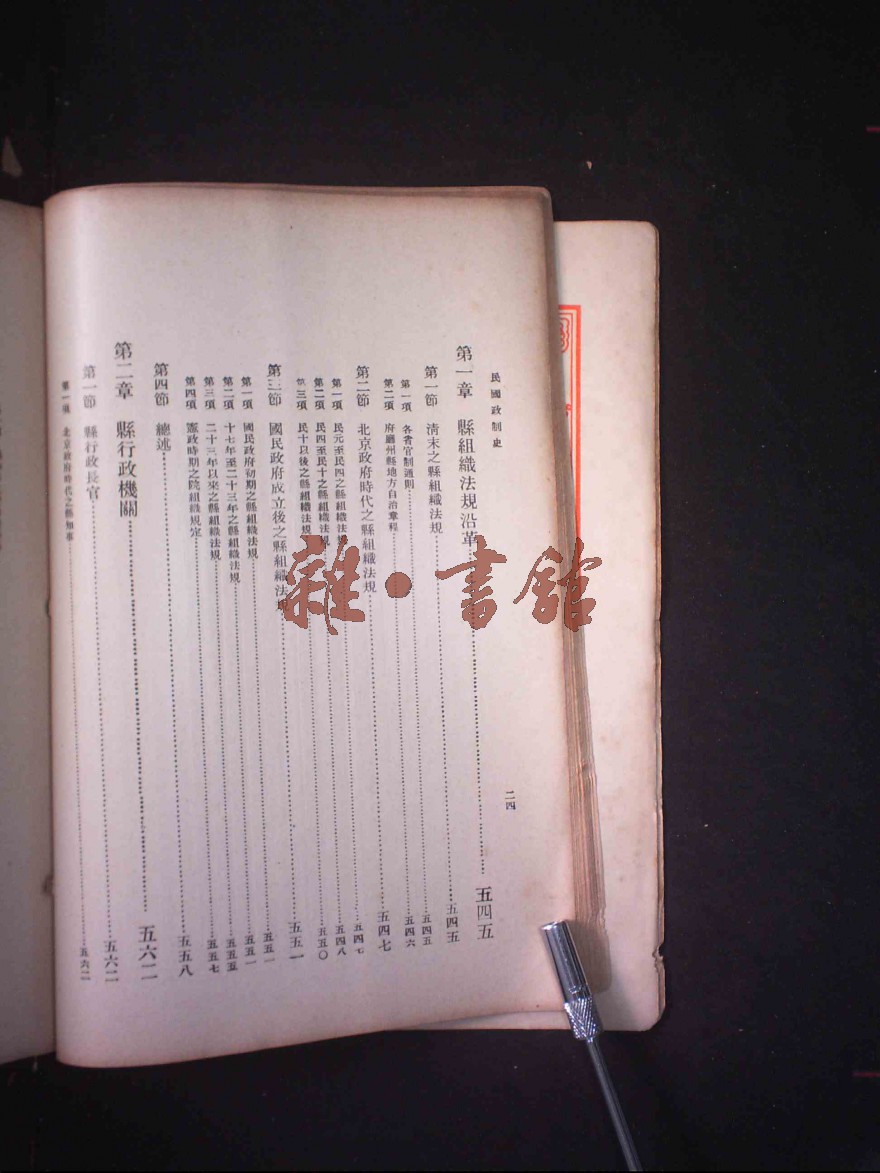 民國政制史
二四
第一章 縣組織法規沿革 五四五
第一節 清末之縣組織法規 五四五
第一項 各省官制通則 五四五
第二項 府廳州縣地方自治章程 五四六
第二節 北京政府時代之縣組織法規 五四七
第一項 民元至民四之縣組織法規 五四七
第二項 民四至民十之縣組織法規 五四八
第三項 民十以後之縣組織法規 五五〇
第三節 國民政府成立後之縣組織法規 五五一
第一項 國民政府初期之縣組織法規 五五一
第二項 十七年至二十三年之縣組織法規 五五一
第三項 二十三年以來之縣組織法規 五五五
第四項 憲政時期之院組織規定 五五七
第四節 總述 五五八
第二章 縣行政機關 五六二
第一節 縣行政長官 五六二
第一項 北京政府時代之縣知事 五六二
雜·書館